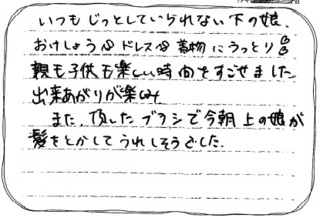 いつもじっとしていられない下の娘、
おけしょう♪ドレス♪着物にうっとり
親も子供も楽しい時間をすごせました
出来あがりが楽しみ
また、頂いたブラシで今朝上の娘が
髪をとかしてうれしそうでした。